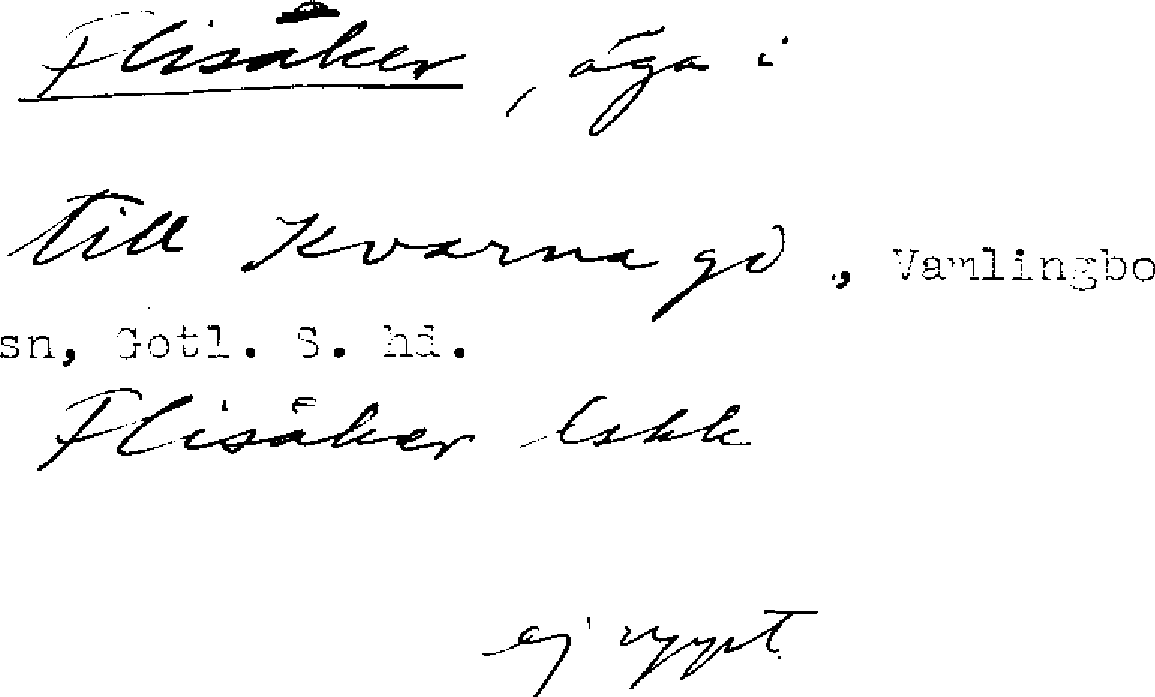 Flisåker, äga i
till Kvarna gd, Vamlingbo
sn, Gotl. S. hd.
Flisåker Eskk
ej uppt